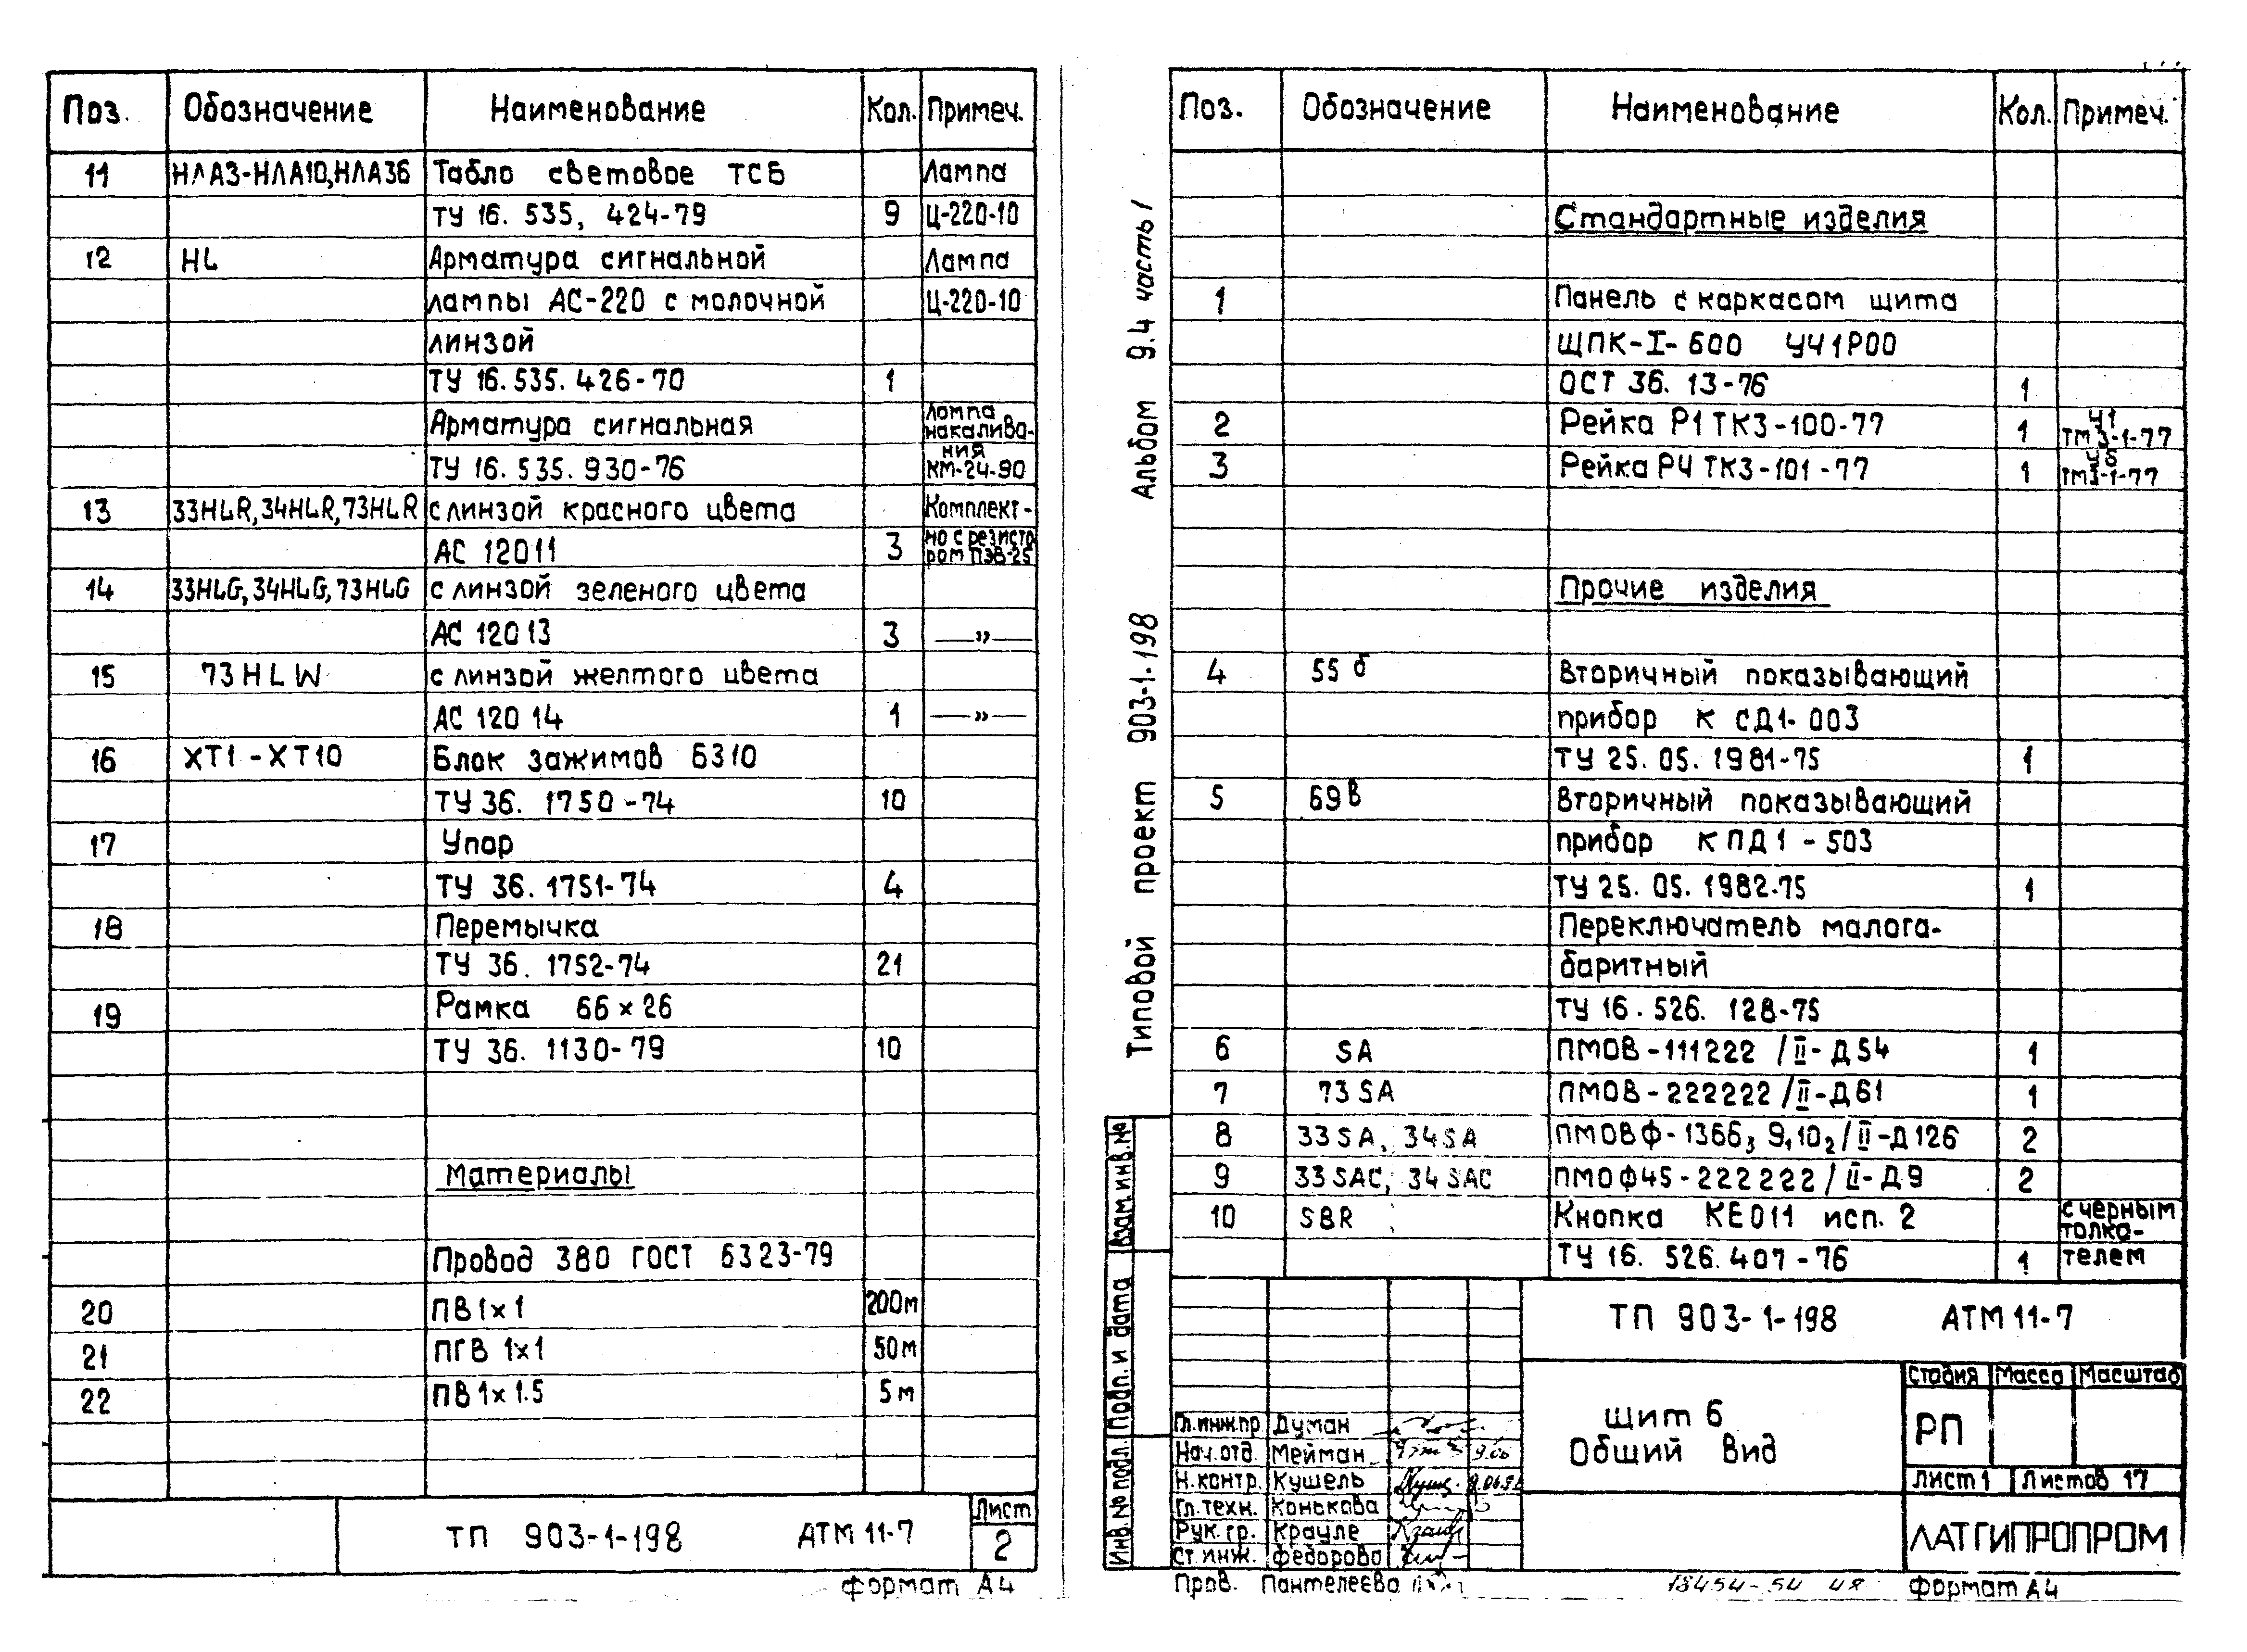 Поз. Обозначение Наименование Кол. Примеч.
11 НЛА3-НЛА10, НЛА36 Табло световое ТСБ Лампа
ТУ 16. 535, 424-79 9 Ц-220-10
12 HL Арматура сигнальной Лампа
лампы АС-220 с молочной Ц-220-10
линзой
ТУ 16.535.426-70 1
Арматура сигнальная Лампа накалива-
ТУ 16.535.930-76 ния КМ-24-90
13 33HLR, 34HLR, 73HLR с линзой красного цвета Комплект-
АС 12011 3 но с резисто ром ПЭВ-25
14 33HLG, 34HLG, 73HLG с линзой зеленого цвета
АС 12013 3 —»—
15 73HLW с линзой желтого цвета
АС 12014 1 —»—
16 ХТ1-ХТ10 Блок зажимов Б310
ТУ 36. 1750-74 10
17 Упор
ТУ 36. 1751-74 4
18 Перемычка
ТУ 36. 1752-74 21
19 Рамка 66×26
ТУ 36. 1130-79 10
Материалы
Провод 380 ГОСТ 6323-79
20 ПВ1×1 200м
21 ПГВ 1×1 50м
22 ПВ1×1.5 5м
ТП 903-1-198 АТМ 11-7
Лист
2
формат А4
Типовой проект 903-1-198 Альбом 9.4 часть 1
Поз. Обозначение Наименование Кол. Примеч.
Стандартные изделия
1 Панель с каркасом щита
ЩПК-I-600 УЧ1Р00
ОСТ 36. 13-76 1
2 Рейка Р1 ТК3-100-77 1 ч1 ТМ3-1-77
3 Рейка РЧ ТК3-101-77 1 ТМ3-1-77
Прочие изделия
4 55б Вторичный показывающий
прибор КСД1-003
ТУ 25. 05. 1981-75 1
5 69в Вторичный показывающий
прибор КПД1-503
ТУ 25. 05. 1982-75 1
Переключатель малога-
баритный
ТУ 16.526. 128-75
6 SA ПМОВ-111222 /II-Д54 1
7 73SA ПМОВ-222222/II-Д61 1
8 33SA, 34SA ПМОВФ-1366₃ 9,10₂/II-Д126 2
9 33SAC, 34SAC ПМОФ45-222222/II-Д9 2
10 SBR Кнопка КЕ011 исп. 2 с черным толка-
ТУ 16. 526.407-76 1 телем
ТП 903-1-198 АТМ 11-7
Щит 6
Общий вид
Стадия Масса Масштаб
РП
Лист 1 Листов 17
ЛАТГИПРОПРОМ
Взам. инв. №
Подп. и дата
Инв. № подл.
Гл. инж.пр Думан
Нач. отд. Мейман
Н. контр. Кушель
Гл. техн. Конькова
Рук. гр. Крауле
Ст. инж. Федорова
Пров. Пантелеева
18454-54 48
формат А4